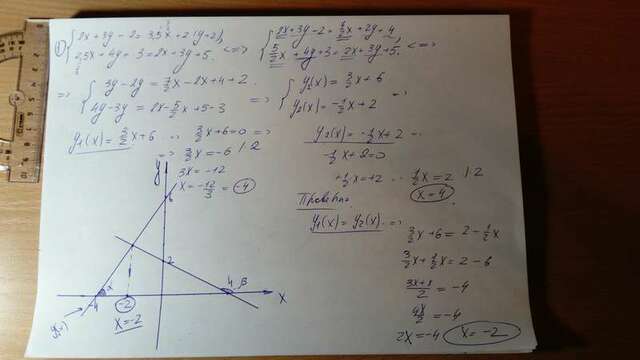 1) { 2x + 3y - 2 = 3,5x + 2(y+2), <=> { 2x + 3y - 2 = 7/2 x + 2y + 4,
2,5x + 4y + 3 = 2x + 3y + 5. 5/2 x + 4y + 3 = 2x + 3y + 5. <=>
=> { 3y - 2y = 7/2 x - 2x + 4 + 2 => { y1(x) = 3/2 x + 6
4y - 3y = 2x - 5/2 x + 5 - 3 y2(x) = -1/2 x + 2
y1(x) = 3/2 x + 6 => 3/2 x + 6 = 0 =>
=> 3/2 x = -6 | ·2
3x = -12
x = -12/3 = -4
y2(x) = -1/2 x + 2
-1/2 x + 2 = 0
+1/2 x = +2 1/2 x = 2 | ·2
x = 4
Проверка.
y1(x) = y2(x) =>
3/2 x + 6 = 2 - 1/2 x
3/2 x + 1/2 x = 2 - 6
3x + x / 2 = -4
4x/2 = -4
2x = -4 x = -2
y
6
2
-4 α -2 4 β x
x = -2